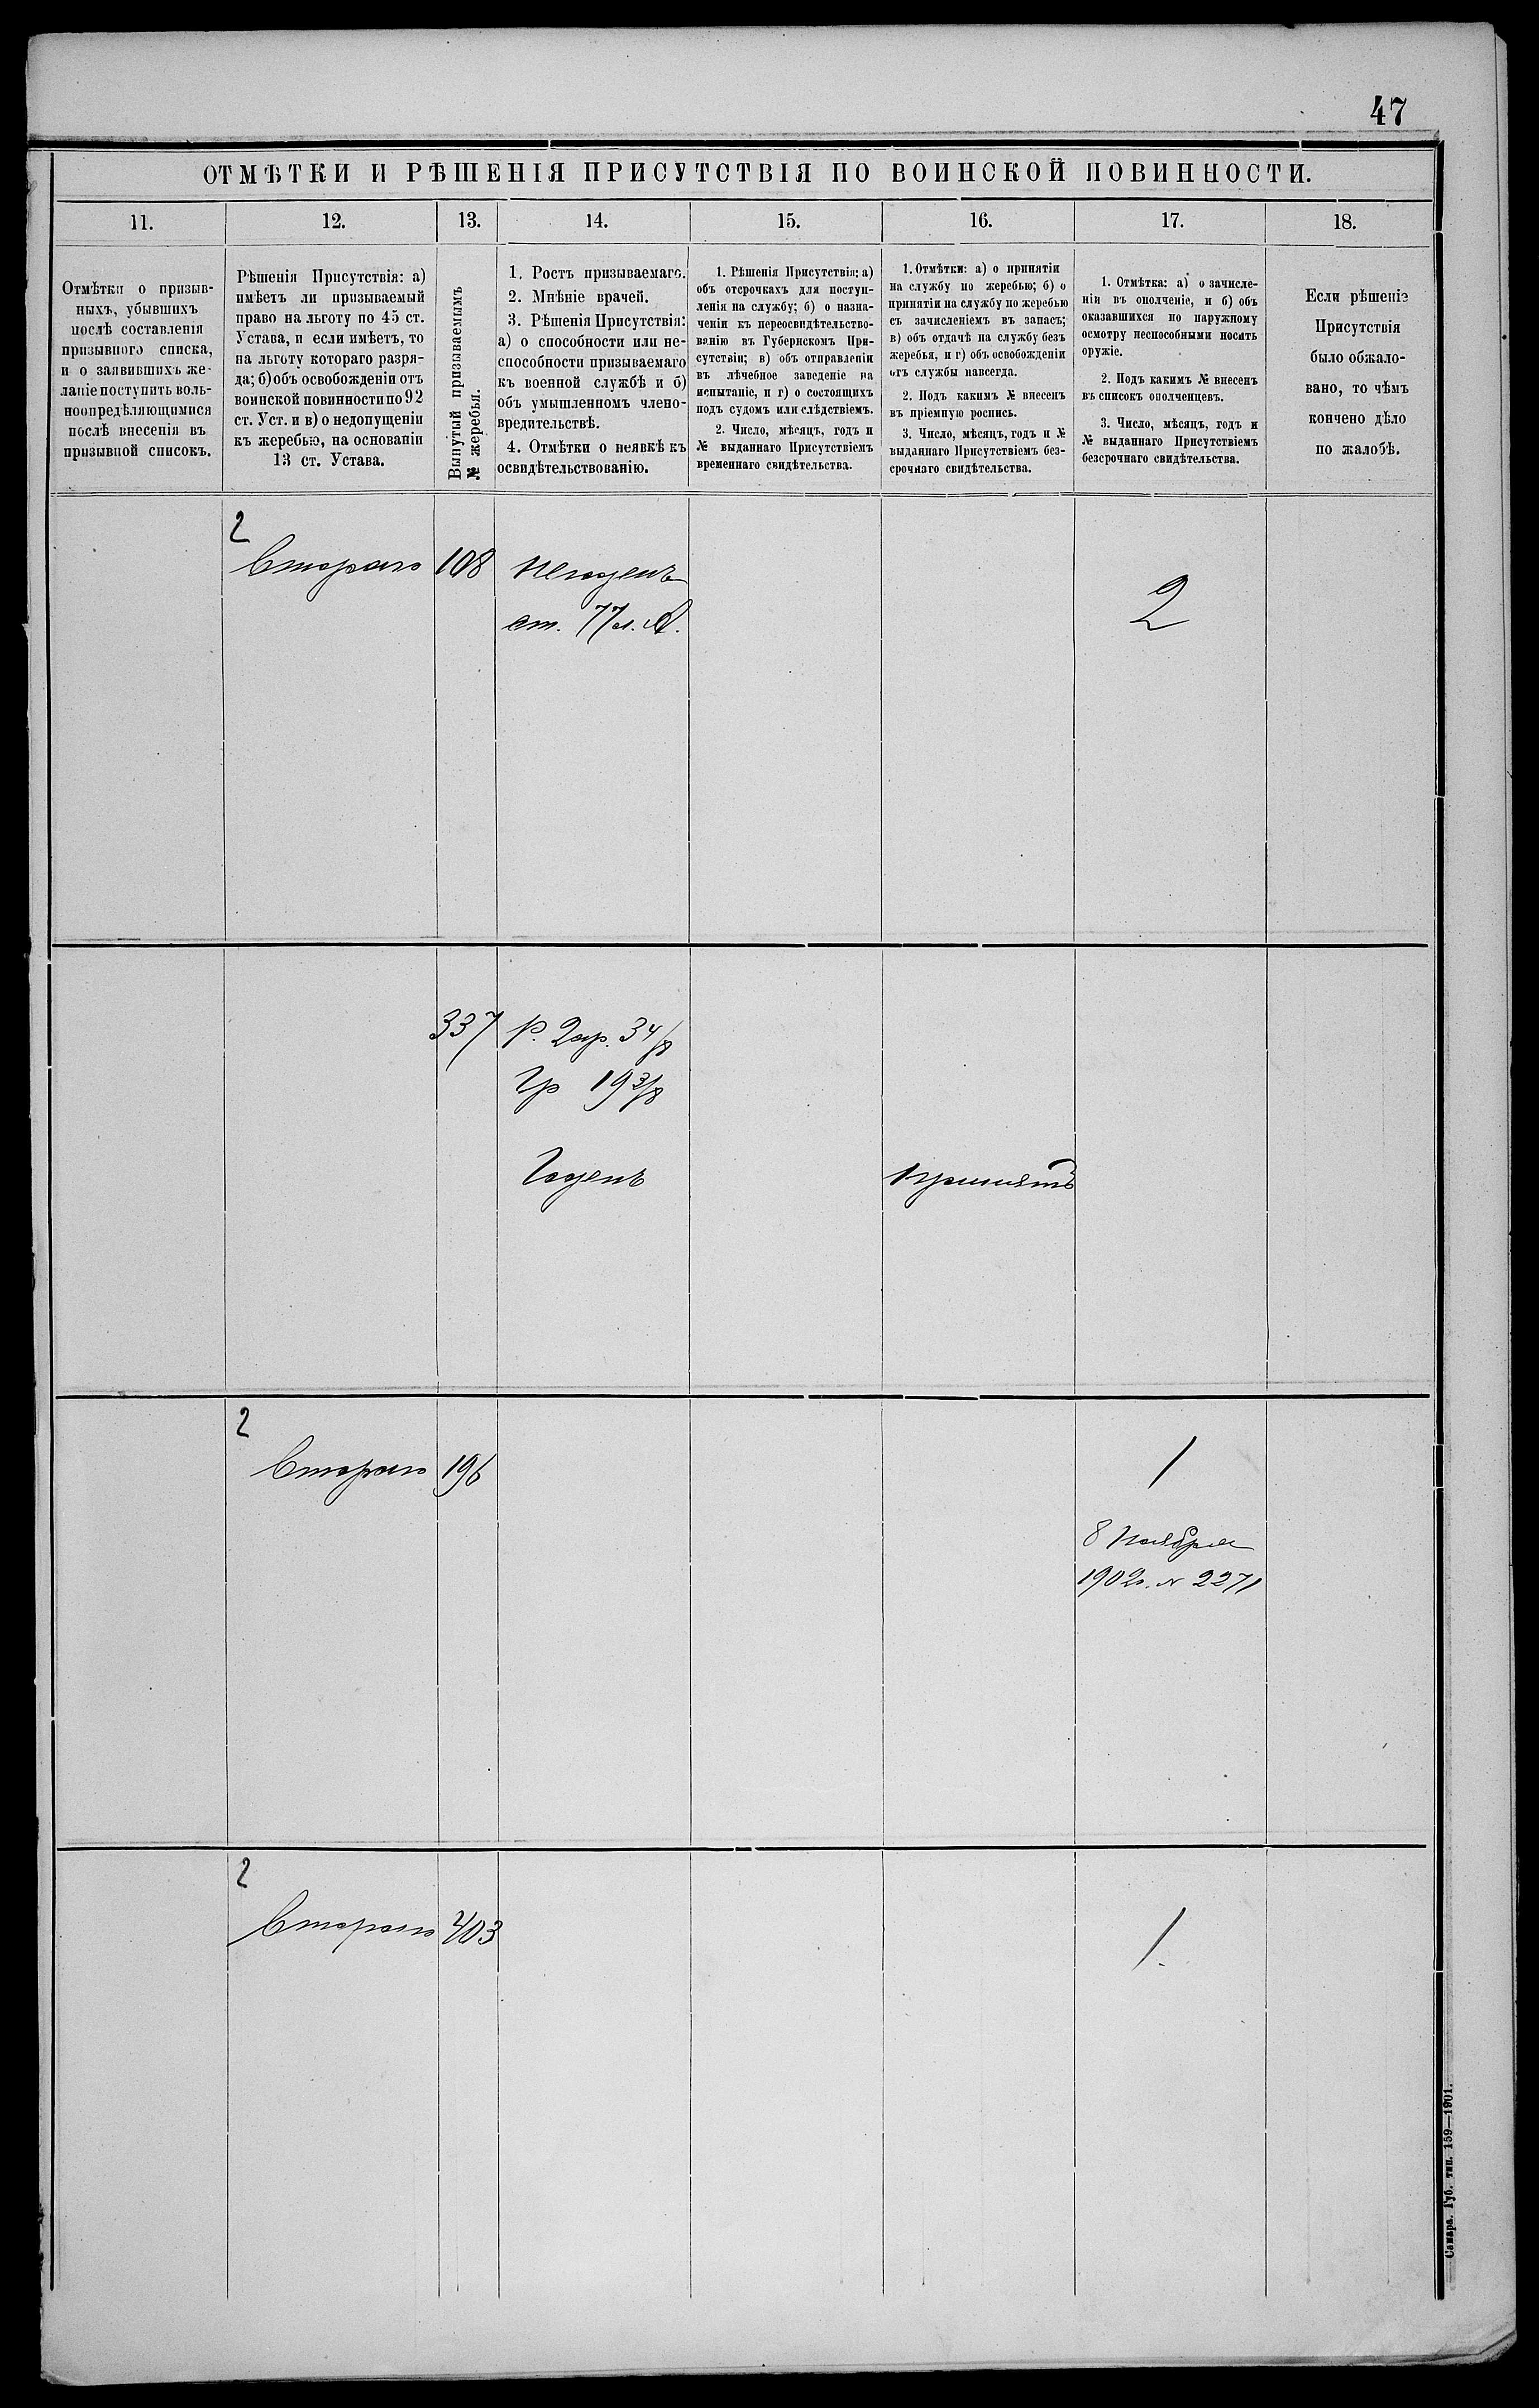 47
ОТМѢТКИ И РѢШЕНІЯ ПРИСУТСТВІЯ ПО ВОИНСКОЙ ПОВИННОСТИ.
11.
12.
13.
14.
15.
16.
17.
18.
Отмѣтки о призыв-
ныхъ, убывшихъ
послѣ составленія
призывного списка,
и о заявившихъ же-
ланіе поступить воль-
ноопредѣляющимися
послѣ внесенія въ
призывной списокъ.
Рѣшенія Присутствія: а)
имѣетъ ли призываемый
право на льготу по 45 ст.
Устава, и если имѣетъ, то
на льготу котораго разря-
да; б) объ освобожденіи отъ
воинской повинности по 92
ст. Уст. и в) о недопущеніи
къ жеребью, на основаніи
13 ст. Устава.
Вынутый призываемымъ
№ жеребья.
1. Ростъ призываемаго.
2. Мнѣніе врачей.
3. Рѣшенія Присутствія:
а) о способности или не-
способности призываемаго
къ военной службѣ и б)
объ умышленномъ члено-
вредительствѣ.
4. Отмѣтки о неявкѣ къ
освидѣтельствованію.
1. Рѣшенія Присутствія: а)
объ отсрочкахъ для поступ-
ленія на службу; б) о назна-
ченіи къ переосвидѣтельство-
ванію въ Губернскомъ При-
сутствіи; в) объ отправленіи
въ лѣчебное заведеніе на
испытаніе, и г) о состоящихъ
подъ судомъ или слѣдствіемъ.
2. Число, мѣсяцъ, годъ и
№ выданнаго Присутствіемъ
временнаго свидѣтельства.
1. Отмѣтки: а) о принятіи
на службу по жеребью; б) о
принятіи на службу по жеребью
съ зачисленіемъ въ запасъ;
в) объ отдачѣ на службу безъ
жеребья, и г) объ освобожденіи
отъ службы навсегда.
2. Подъ какимъ № внесенъ
въ пріемную роспись.
3. Число, мѣсяцъ, годъ и №
выданнаго Присутствіемъ без-
срочнаго свидѣтельства.
1. Отмѣтка: а) о зачисле-
ніи въ ополченіе, и б) объ
оказавшихся по наружному
осмотру неспособными носить
оружіе.
2. Подъ какимъ № внесенъ
въ списокъ ополченцевъ.
3. Число, мѣсяцъ, годъ и
№ выданнаго Присутствіемъ
безсрочнаго свидѣтельства.
Если рѣшеніе
Присутствія
было обжало-
вано, то чѣмъ
кончено дѣло
по жалобѣ.
2
Втораго 108 негоденъ
ст. 77 л. А.
2
337 Р. 2 ар. 3 4/8
Гр 19 3/8
Годенъ
принятъ
2
Втораго 196
1
8 Ноября
1902г. № 2271
2
Втораго 403
1.
Самара. Губ. тип. 159—1901.